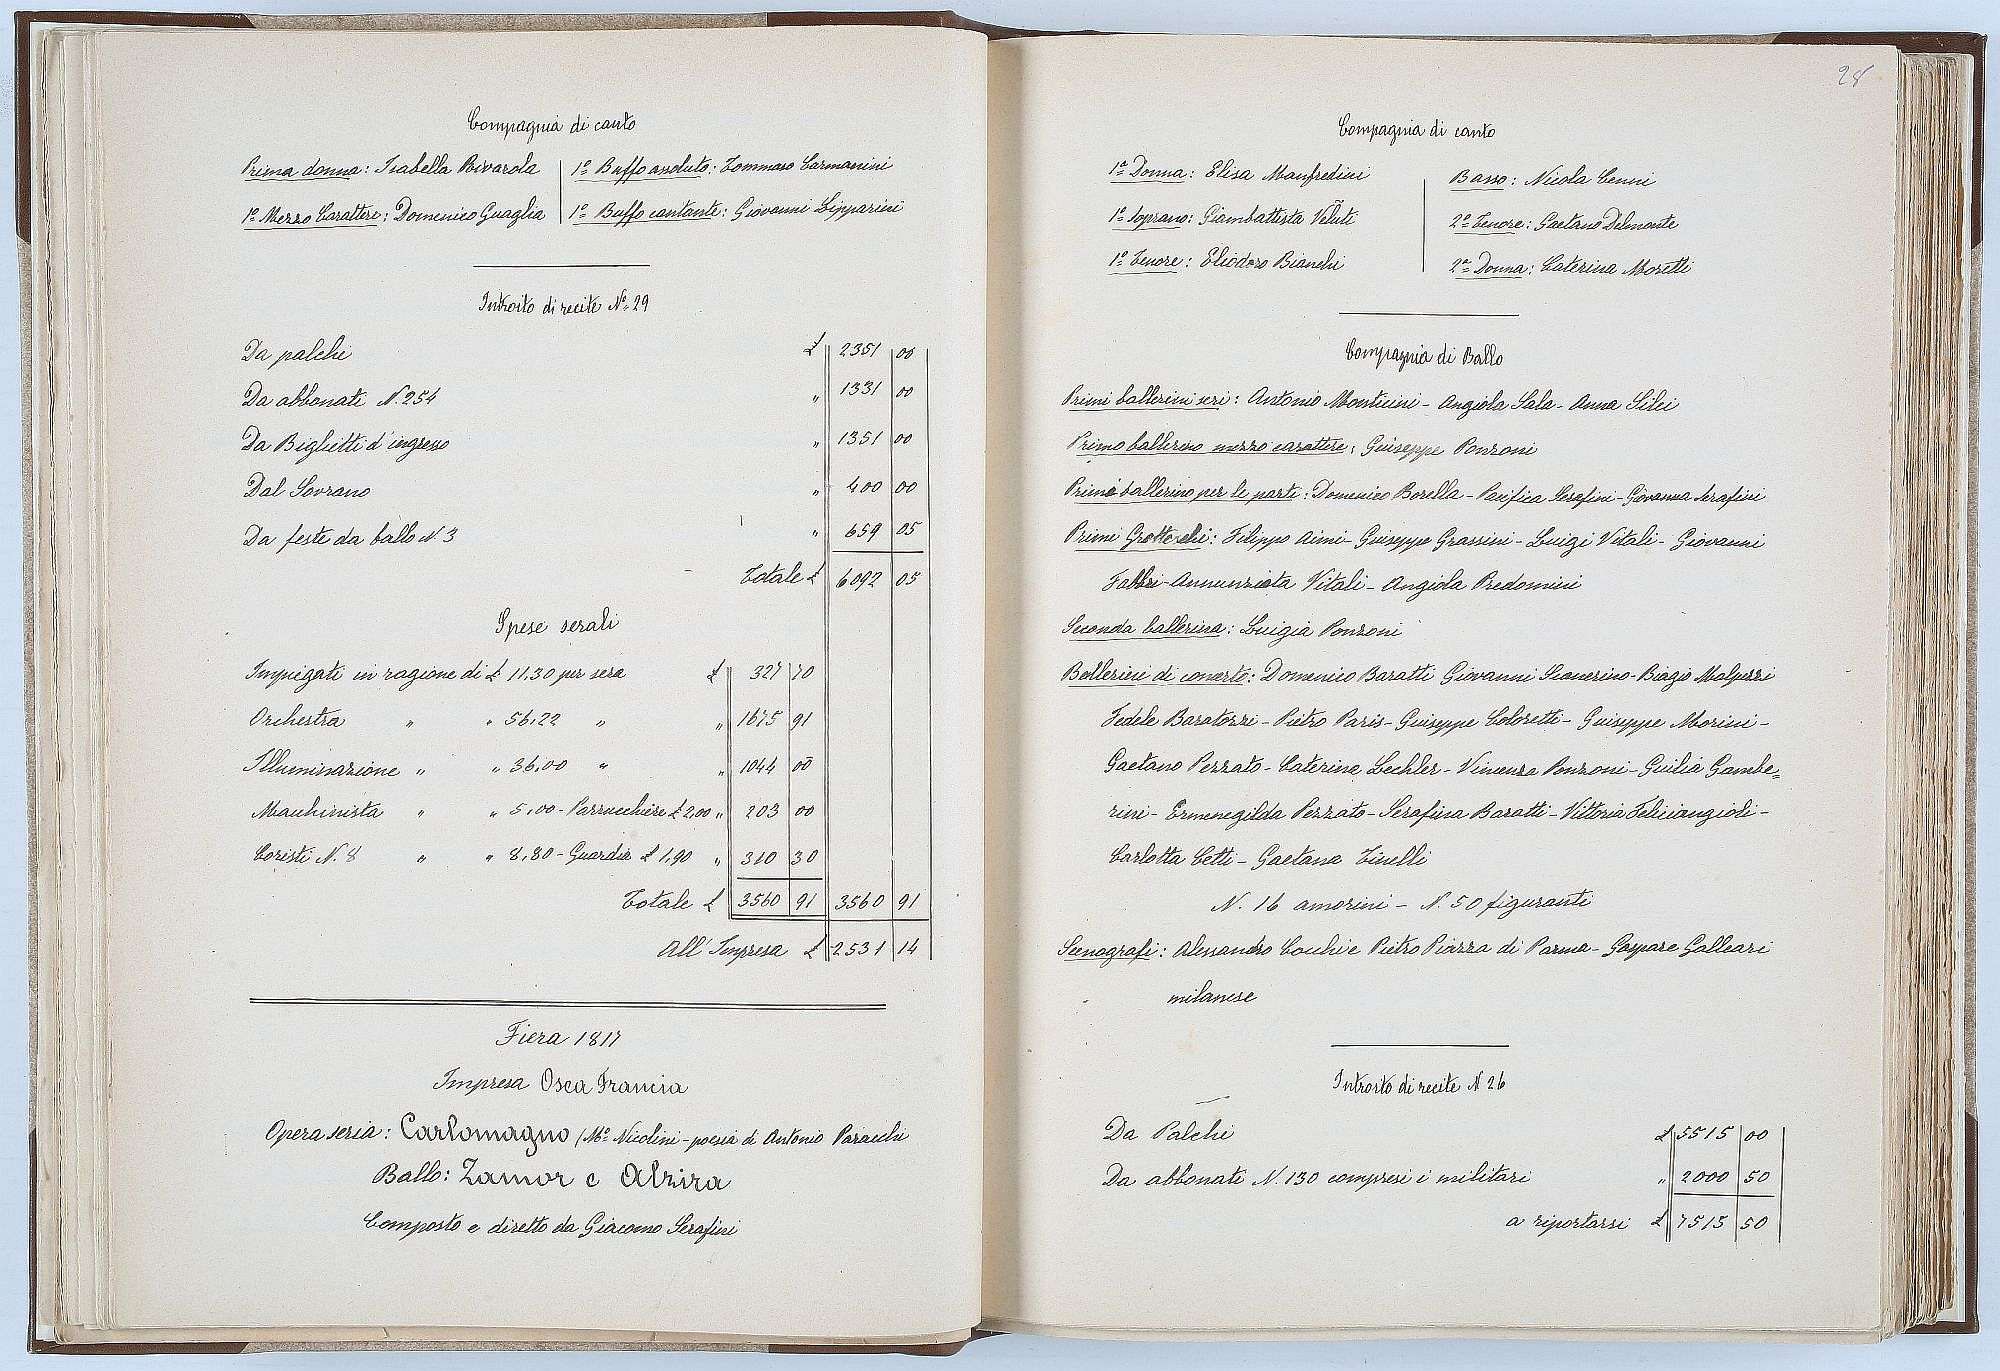 Compagnia di canto
Prima donna: Isabella Rivarola | 1º Buffo assoluto: Tommaso Carmanini
1º Mezzo Carattere: Domenico Guaglia | 1º Buffo cantante: Giovanni Lipparini
Introito di recite Nº 29
Da palchi £ 2351 00
Da abbonati N. 254 " 1331 00
Da Biglietti d'ingresso " 1351 00
Dal Sovrano " 400 00
Da feste da ballo N 3 " 659 05
Totale £ 6092 05
Spese serali
Impiegati in ragione di £ 11,30 per sera £ 327 70
Orchestra " " 56,22 " " 1675 91
Illuminazione " " 36,00 " " 1044 00
Macchinista " " 5,00 - Parrucchiere £ 2,00 " 203 00
Coristi N. 8 " " 8,80 - Guardia £ 1,90 " 310 30
Totale £ 3560 91 3560 91
All'Impresa £ 2531 14
Fiera 1817
Impresa Osea Francia
Opera seria: Carlomagno (Mº Nicolini - poesia di Antonio Peracchi
Ballo: Zamor e Alzira
Composto e diretto da Giacomo Serafini
28
Compagnia di canto
1ª Donna: Elisa Manfredini
1º Soprano: Giambattista Veluti
1º Tenore: Eliodoro Bianchi
Basso: Nicola Cenni
2º Tenore: Gaetano Delmonte
2ª Donna: Caterina Moretti
Compagnia di Ballo
Primi ballerini seri: Antonio Monticini - Angiola Sala - Anna Silei
Primo ballerino mezzo carattere: Guiseppe Ponzoni
Primo ballerino per le parti: Domenico Borella - Pacifica Serafini - Giovanna Serafini
Primi Grotteschi: Filippo Aimi - Guiseppe Grassini - Luigi Vitali - Giovanni
Fabbri - Annunziata Vitali - Angiola Predomini
Seconda ballerina: Luigia Ponzoni
Ballerini di concerto: Domenico Baratti Giovanni Scanerino - Biagio Malpezzi
Fedele Baratozzi - Pietro Paris - Guiseppe Coloretti - Guiseppe Morini -
Gaetano Pezzato - Caterina Lechler - Vincenza Ponzoni - Guilia Gambe=
rini - Ermenegilda Pezzato - Serafina Baratti - Vittoria Feliciangioli -
Carlotta Cetti - Gaetana Tinelli
N. 16 amorini - N. 50 figuranti
Scenografi: Alessandro Cocchi e Pietro Piazza di Parma - Gaspare Galleari
milanese
Introito di recite N 26
Da Palchi £ 5515 00
Da abbonati N. 130 compresi i militari " 2000 50
a riportarsi £ 7515 50